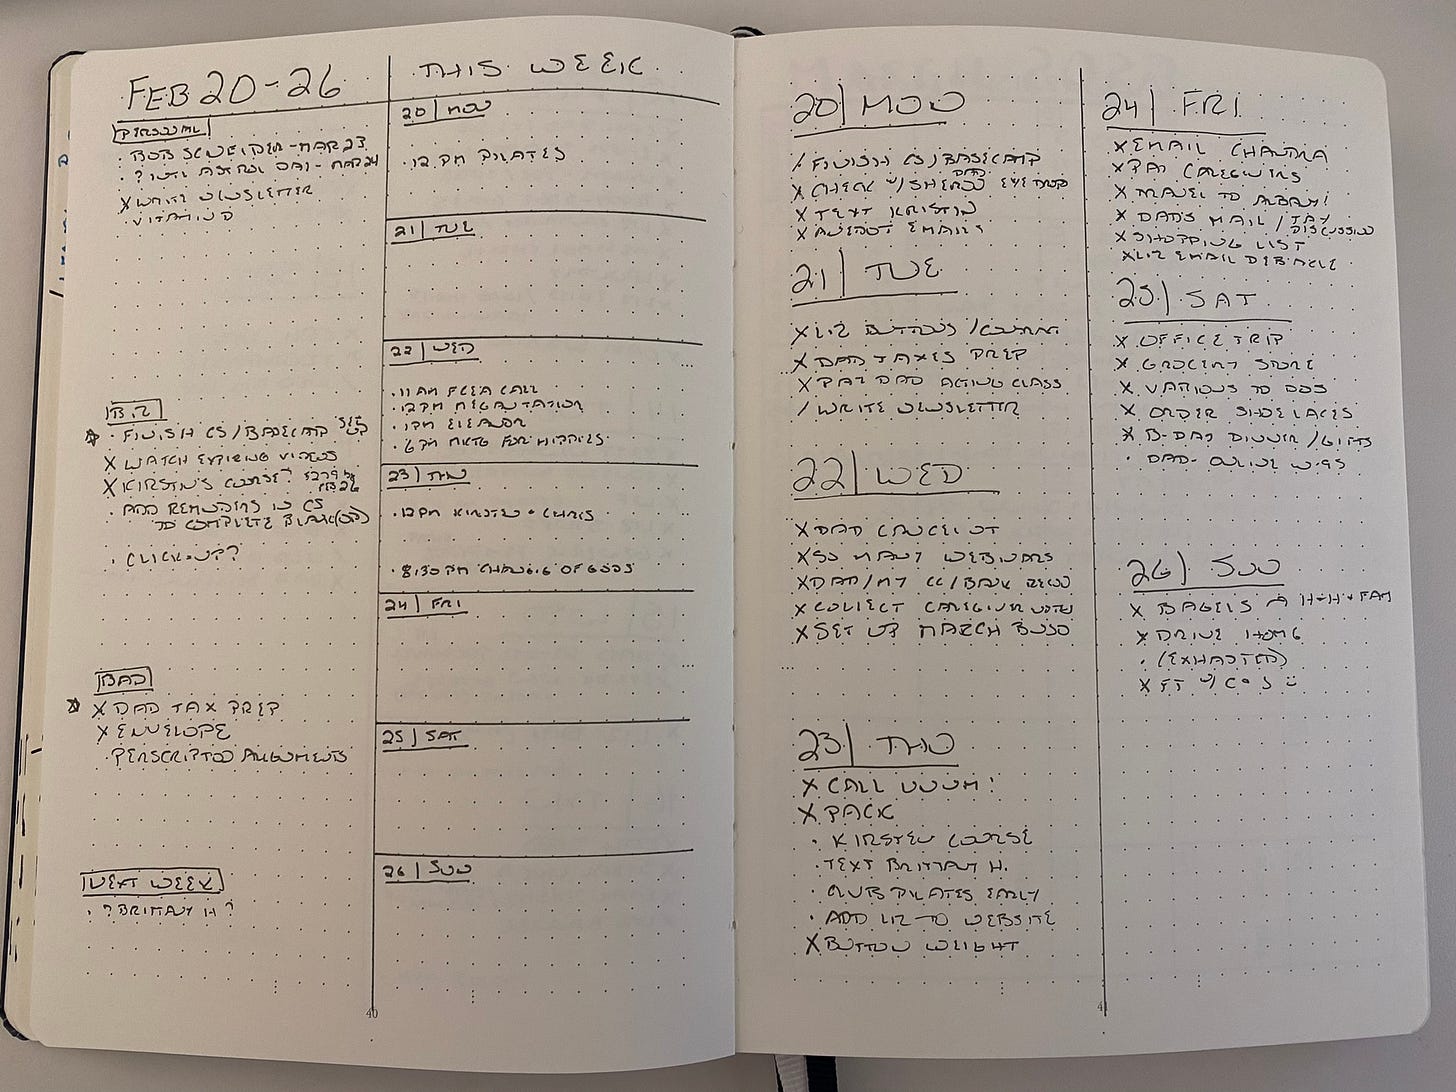 FEB 20-26
PERSONAL
· BOB SCNEIDER - MAR 23
· ? INTL ASTROL DAY - MAR 24
X WRITE NEWSLETTER
· VITAMIN D
B.R
· FINISH CS/BASECAMP SET UP
X WATCH EXPIRING VIDEOS
X KIRSTIN'S COURSE? $279 by FEB 26
· ADD REMINDERS IN CS
TO COMPLETE
· CLICK-UP?
DAD
X DAD TAX PREP
X ENVELOPE
· PERSCRIPTION
NEXT WEEK
· ? BRITTANY H?
THIS WEEK
20 | MON
· 12 PM PILATES
21 | TUE
22 | WED
· 11 AM CALL
· 12 PM
· 1 PM ELEANOR
· 6 PM MKTG FOR HIPPIES
23 | THU
· 12 PM KIRSTEN + CHRIS
· 8:30 PM CHANGING OF GODS
24 | FRI
25 | SAT
26 | SUN
40
20 | MON
/ FINISH CS/BASECAMP
X CHECK W/SHERON DAD EYE DROP
X TEXT KRISTIN
X EMAILS
21 | TUE
X LIZ BUTTONS /
X DAD TAXES PREP
X PAY DAD ACTING CLASS
/ WRITE NEWSLETTER
22 | WED
X DAD CANCEL OT
X SO MANY WEBINARS
X DAD/MY CC/BANK RECON
X COLLECT CAREGIVER NOTES
X SET UP MARCH BUJO
23 | THU
X CALL NUUN!
X PACK
· KIRSTEN COURSE
· TEXT BRITTANY H.
· CLUB PILATES EARLY
· ADD LIZ TO WEBSITE
X BUTTON WEIGHT
24 | FRI
X EMAIL CHANDRA
X PAY CAREGIVERS
X TRAVEL TO ALBANY!
X DAD'S MAIL / TAX DISCUSSION
X SHOPPING LIST
X LIZ EMAIL DEBACLE
25 | SAT
X OFFICE TRIP
X GROCERY STORE
X VARIOUS TO DOS
X ORDER SHOELACES
X B-DAY DINNER / GIFTS
· DAD - ONLINE
26 | SUN
X BAGELS H+H + FAM
X DRIVE HOME
· (EXHAUSTED)
X FT W/
41